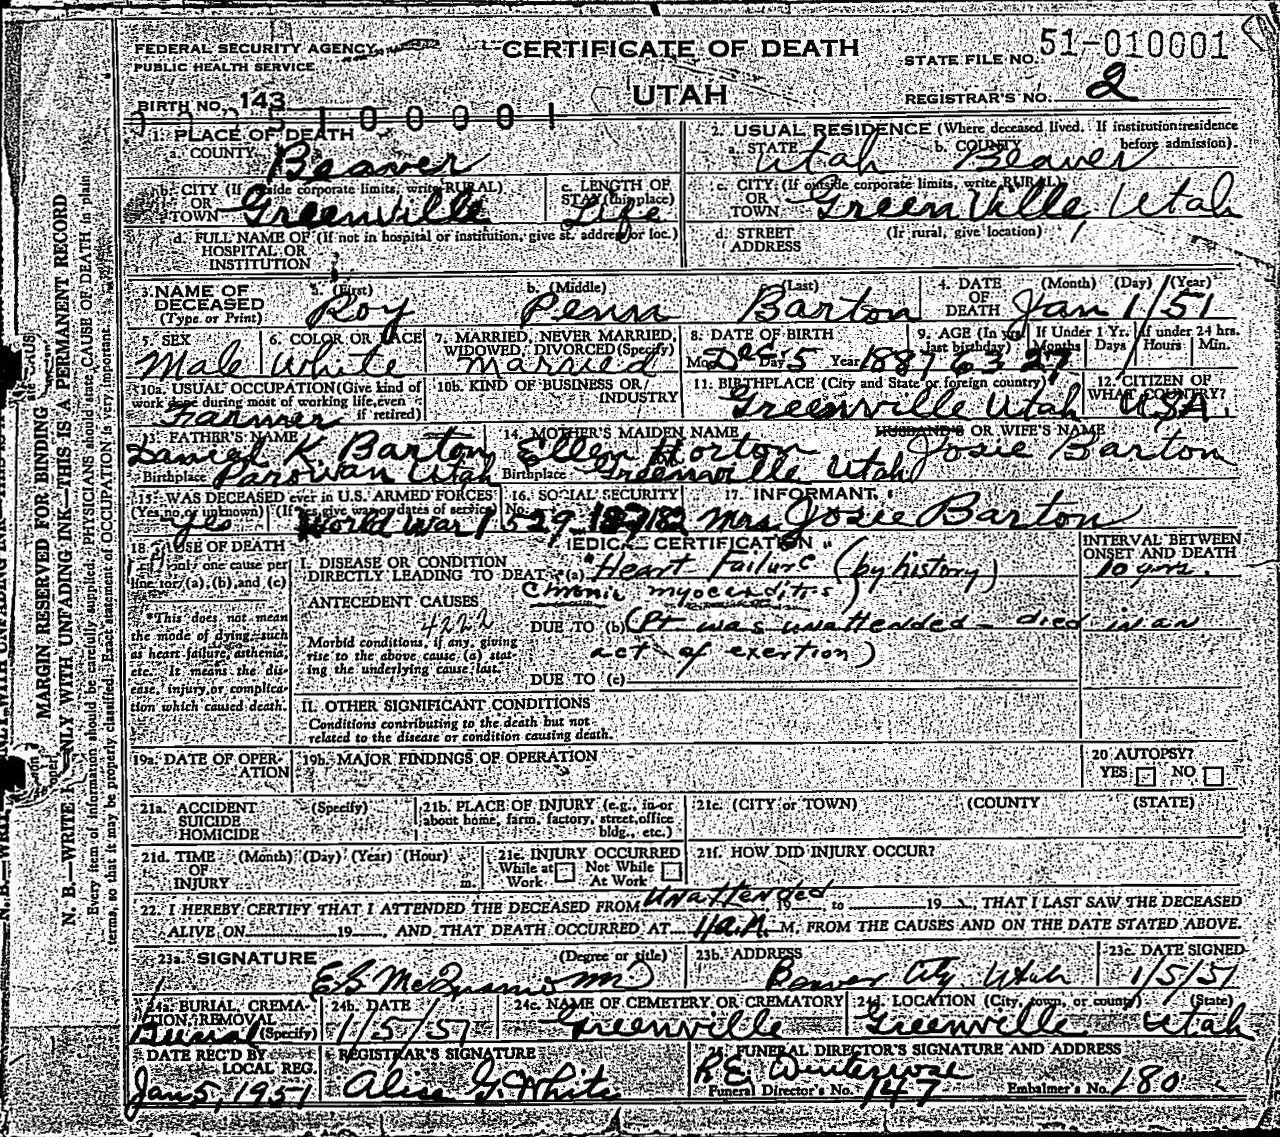 FEDERAL SECURITY AGENCY
PUBLIC HEALTH SERVICE
CERTIFICATE OF DEATH
UTAH
STATE FILE NO. 51-010001
REGISTRAR'S NO. 2
BIRTH NO. 143
1. PLACE OF DEATH
a. COUNTY Beaver
2. USUAL RESIDENCE (Where deceased lived. If institution: residence before admission).
a. STATE Utah b. COUNTY Beaver
b. CITY (If outside corporate limits, write RURAL) OR TOWN Greenville
c. LENGTH OF STAY (this place) Life
c. CITY (If outside corporate limits, write RURAL) OR TOWN Greenville, Utah
d. FULL NAME OF (If not in hospital or institution, give st. address or loc.) HOSPITAL OR INSTITUTION
d. STREET ADDRESS (If rural, give location)
3. NAME OF DECEASED (Type or Print)
a. (First) Roy b. (Middle) Penn (Last) Barton
4. DATE OF DEATH (Month) (Day) (Year) Jan 1/51
5. SEX Male
6. COLOR OR RACE White
7. MARRIED, NEVER MARRIED, WIDOWED, DIVORCED (Specify) Married
8. DATE OF BIRTH Mo. Dec Day 5 Year 1887
9. AGE (In yrs. last birthday) 63 If Under 1 Yr. Months Days 27 If under 24 hrs. Hours Min.
10a. USUAL OCCUPATION (Give kind of work done during most of working life, even if retired) Farmer
10b. KIND OF BUSINESS OR INDUSTRY
11. BIRTHPLACE (City and State or foreign country) Greenville Utah
12. CITIZEN OF WHAT COUNTRY? USA.
13. FATHER'S NAME Daniel K Barton
Birthplace Parowan Utah
14. MOTHER'S MAIDEN NAME Ellen Horton
Birthplace Greenville Utah
HUSBAND'S OR WIFE'S NAME Josie Barton
15. WAS DECEASED ever in U.S. ARMED FORCES
(Yes, no, or unknown) yes (If yes give war or dates of service) World War I
16. SOCIAL SECURITY No. 529
17. INFORMANT Mrs Josie Barton
18. CAUSE OF DEATH
only one cause per line for (a), (b), and (c)
*This does not mean the mode of dying, such as heart failure, asthenia, etc. It means the disease, injury, or complication which caused death.
MEDICAL CERTIFICATION
INTERVAL BETWEEN ONSET AND DEATH
I. DISEASE OR CONDITION DIRECTLY LEADING TO DEATH* (a) "Heart Failure" (by history) 10 yrs.
chronic myocarditis
ANTECEDENT CAUSES
4222
Morbid conditions, if any, giving rise to the above cause (a) stating the underlying cause last.
DUE TO (b) (Pt was unattended - died in an
act of exertion)
DUE TO (c)
II. OTHER SIGNIFICANT CONDITIONS
Conditions contributing to the death but not related to the disease or condition causing death.
19a. DATE OF OPERATION
19b. MAJOR FINDINGS OF OPERATION
20 AUTOPSY?
YES NO
21a. ACCIDENT SUICIDE HOMICIDE (Specify)
21b. PLACE OF INJURY (e.g., in or about home, farm, factory, street, office bldg., etc.)
21c. (CITY or TOWN) (COUNTY) (STATE)
21d. TIME OF INJURY (Month) (Day) (Year) (Hour) m.
21e. INJURY OCCURRED While at Work Not While At Work
21f. HOW DID INJURY OCCUR?
22. I HEREBY CERTIFY THAT I ATTENDED THE DECEASED FROM Unattended 19 to 19 , THAT I LAST SAW THE DECEASED
ALIVE ON 19 , AND THAT DEATH OCCURRED AT M, FROM THE CAUSES AND ON THE DATE STATED ABOVE.
23a. SIGNATURE (Degree or title)
23b. ADDRESS Beaver City Utah
23c. DATE SIGNED 1/5/51
24a. BURIAL, CREMATION, REMOVAL (Specify) Burial
24b. DATE 1/5/51
24c. NAME OF CEMETERY OR CREMATORY Greenville
24d. LOCATION (City, town, or county) (State) Greenville Utah
DATE REC'D BY LOCAL REG. Jan 5, 1951
REGISTRAR'S SIGNATURE Alise G. White
25. FUNERAL DIRECTOR'S SIGNATURE AND ADDRESS
Funeral Director's No. 147 Embalmer's No. 180
MARGIN RESERVED FOR BINDING
N. B.—WRITE PLAINLY WITH UNFADING INK—THIS IS A PERMANENT RECORD
Every item of information should be carefully supplied. PHYSICIANS should state CAUSE OF DEATH in plain
terms, so that it may be properly classified. Exact statement of OCCUPATION is very important.